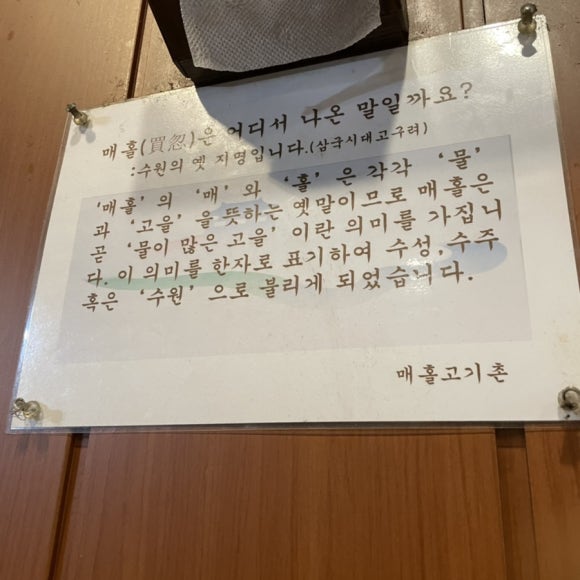 매홀(買忽)은 어디서 나온 말일까요?
:수원의 옛 지명입니다.(삼국시대고구려)
'매홀'의 '매'와 '홀'은 각각 '물'
과 '고을'을 뜻하는 옛말이므로 매홀은
곧 '물이 많은 고을'이란 의미를 가집니
다. 이 의미를 한자로 표기하여 수성, 수주
혹은 '수원'으로 불리게 되었습니다.
매홀고기촌